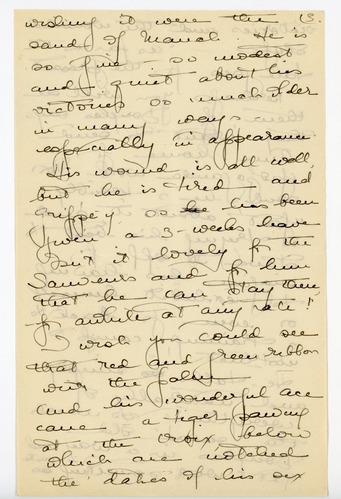 wording it were the (3.
sand of Manch. He is
so fine, so modest
and quiet about his
victories so much older
in many ways
especially in appearance
His wound is all well,
but he is tired and
Grippey so he has been
given a 3-weeks leave
Isn't it lovely for the
and for him
that he can stay there
for awhile at any rate!
I wish you could see
that red and green ribbon
with the palm
and his wonderful ace
cane a tiger pawing
at the croix below
which are notched
the dates of his six